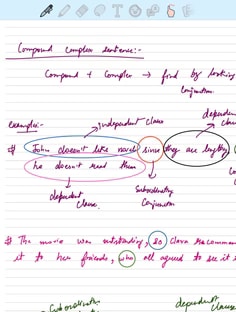 Compound complex sentence:-
Compound + Complex → find by looking
Conjunction.
example:-
independent Clause
dependent
Clause
# John doesn't like novel since they are lengthy
he doesn't read them
dependent
Clause
Subordinating
Conjunction
# The movie was outstanding, So Clara recomm
it to her friends, who all agreed to see it
Subordinatin
dependent
Clause